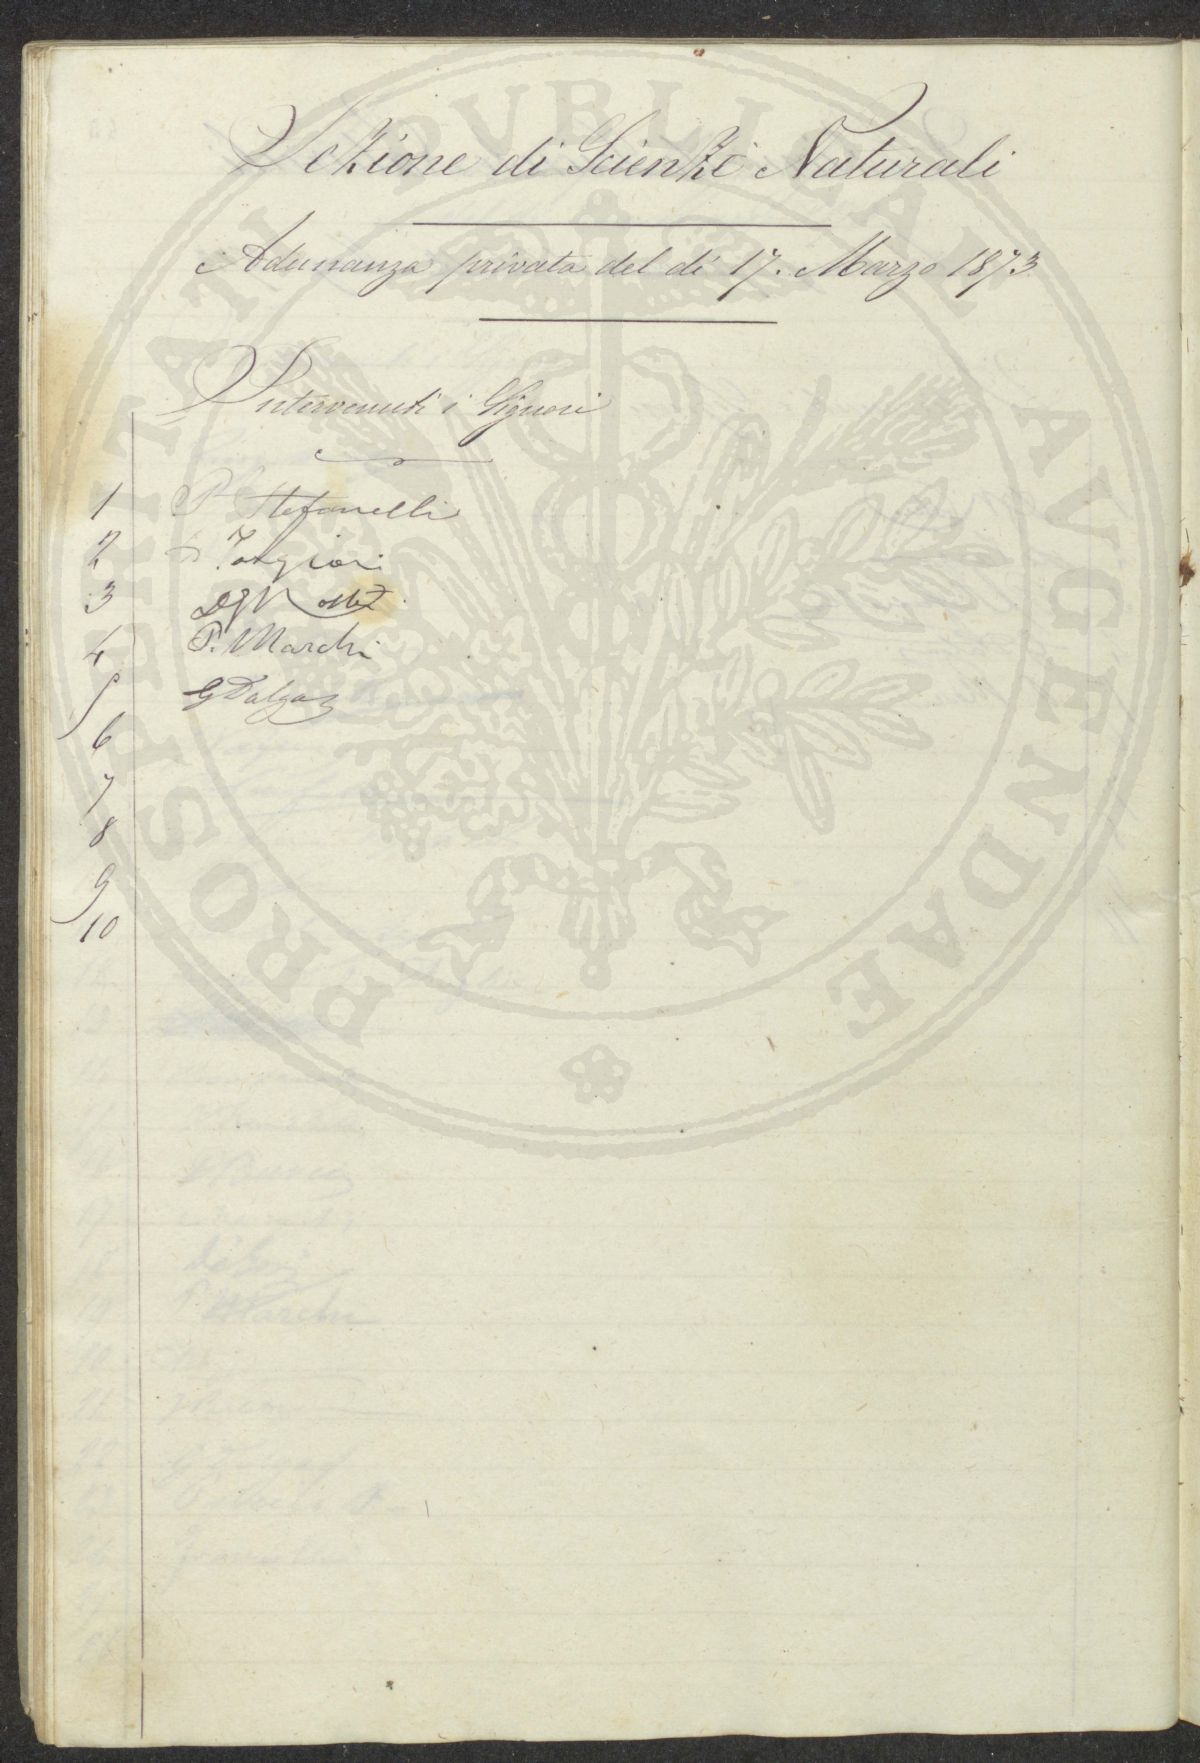 Sezione di Scienze Naturali
Adunanza privata del dì 17. Marzo 1873
Intervenuti i Signori
1 P Stefanelli
2 Targioni
3
4 P. Marchi
5 G Dalgas
6
7
8
9
10
PROSPERITATI PVBLICAE AVGENDAE